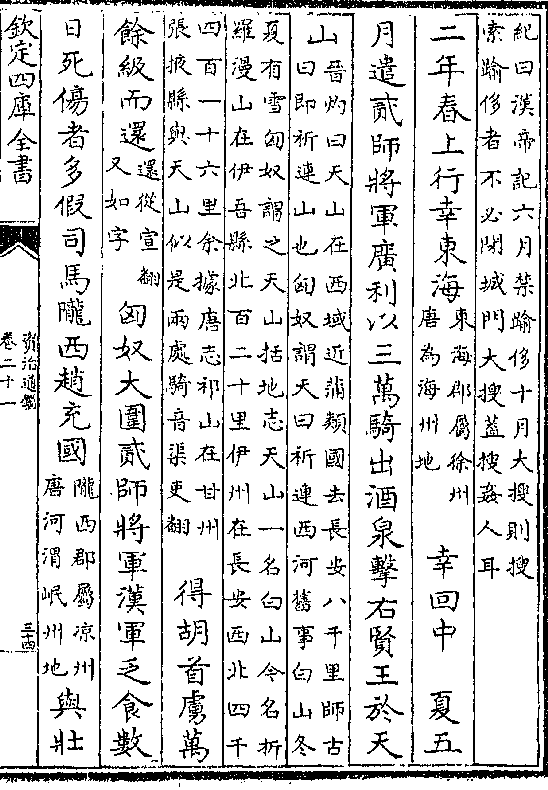 紀曰漢帝記六月禁踰侈十月大搜則搜
索踰侈者不必閉城門大搜蓋搜姦人耳
二年春上行幸東海 東海郡屬徐州 唐為海州地 幸回中 夏五
月遣貳師將軍廣利以三萬騎出酒泉擊右賢王於天
山 晉灼曰天山在西域近蒲類國去長安八千里師古
曰即祈連山也匈奴謂天曰祈連西河舊事白山冬
夏有雪匈奴謂之天山括地志天山一名白山今名折
羅漫山在伊吾縣北百二十里伊州在長安西北四千
四百一十六里余據唐志祁山在甘州
張掖縣與天山似是兩處騎音渠吏翻 得胡首虜萬
餘級而還 還從宣翻 又如字 匈奴大圍貳師將軍漢軍乏食數
日死傷者多假司馬隴西趙充國 隴西郡屬凉州 唐河渭岷州地 與壯
欽定四庫全書
資治通鑑
卷二十一
三十四